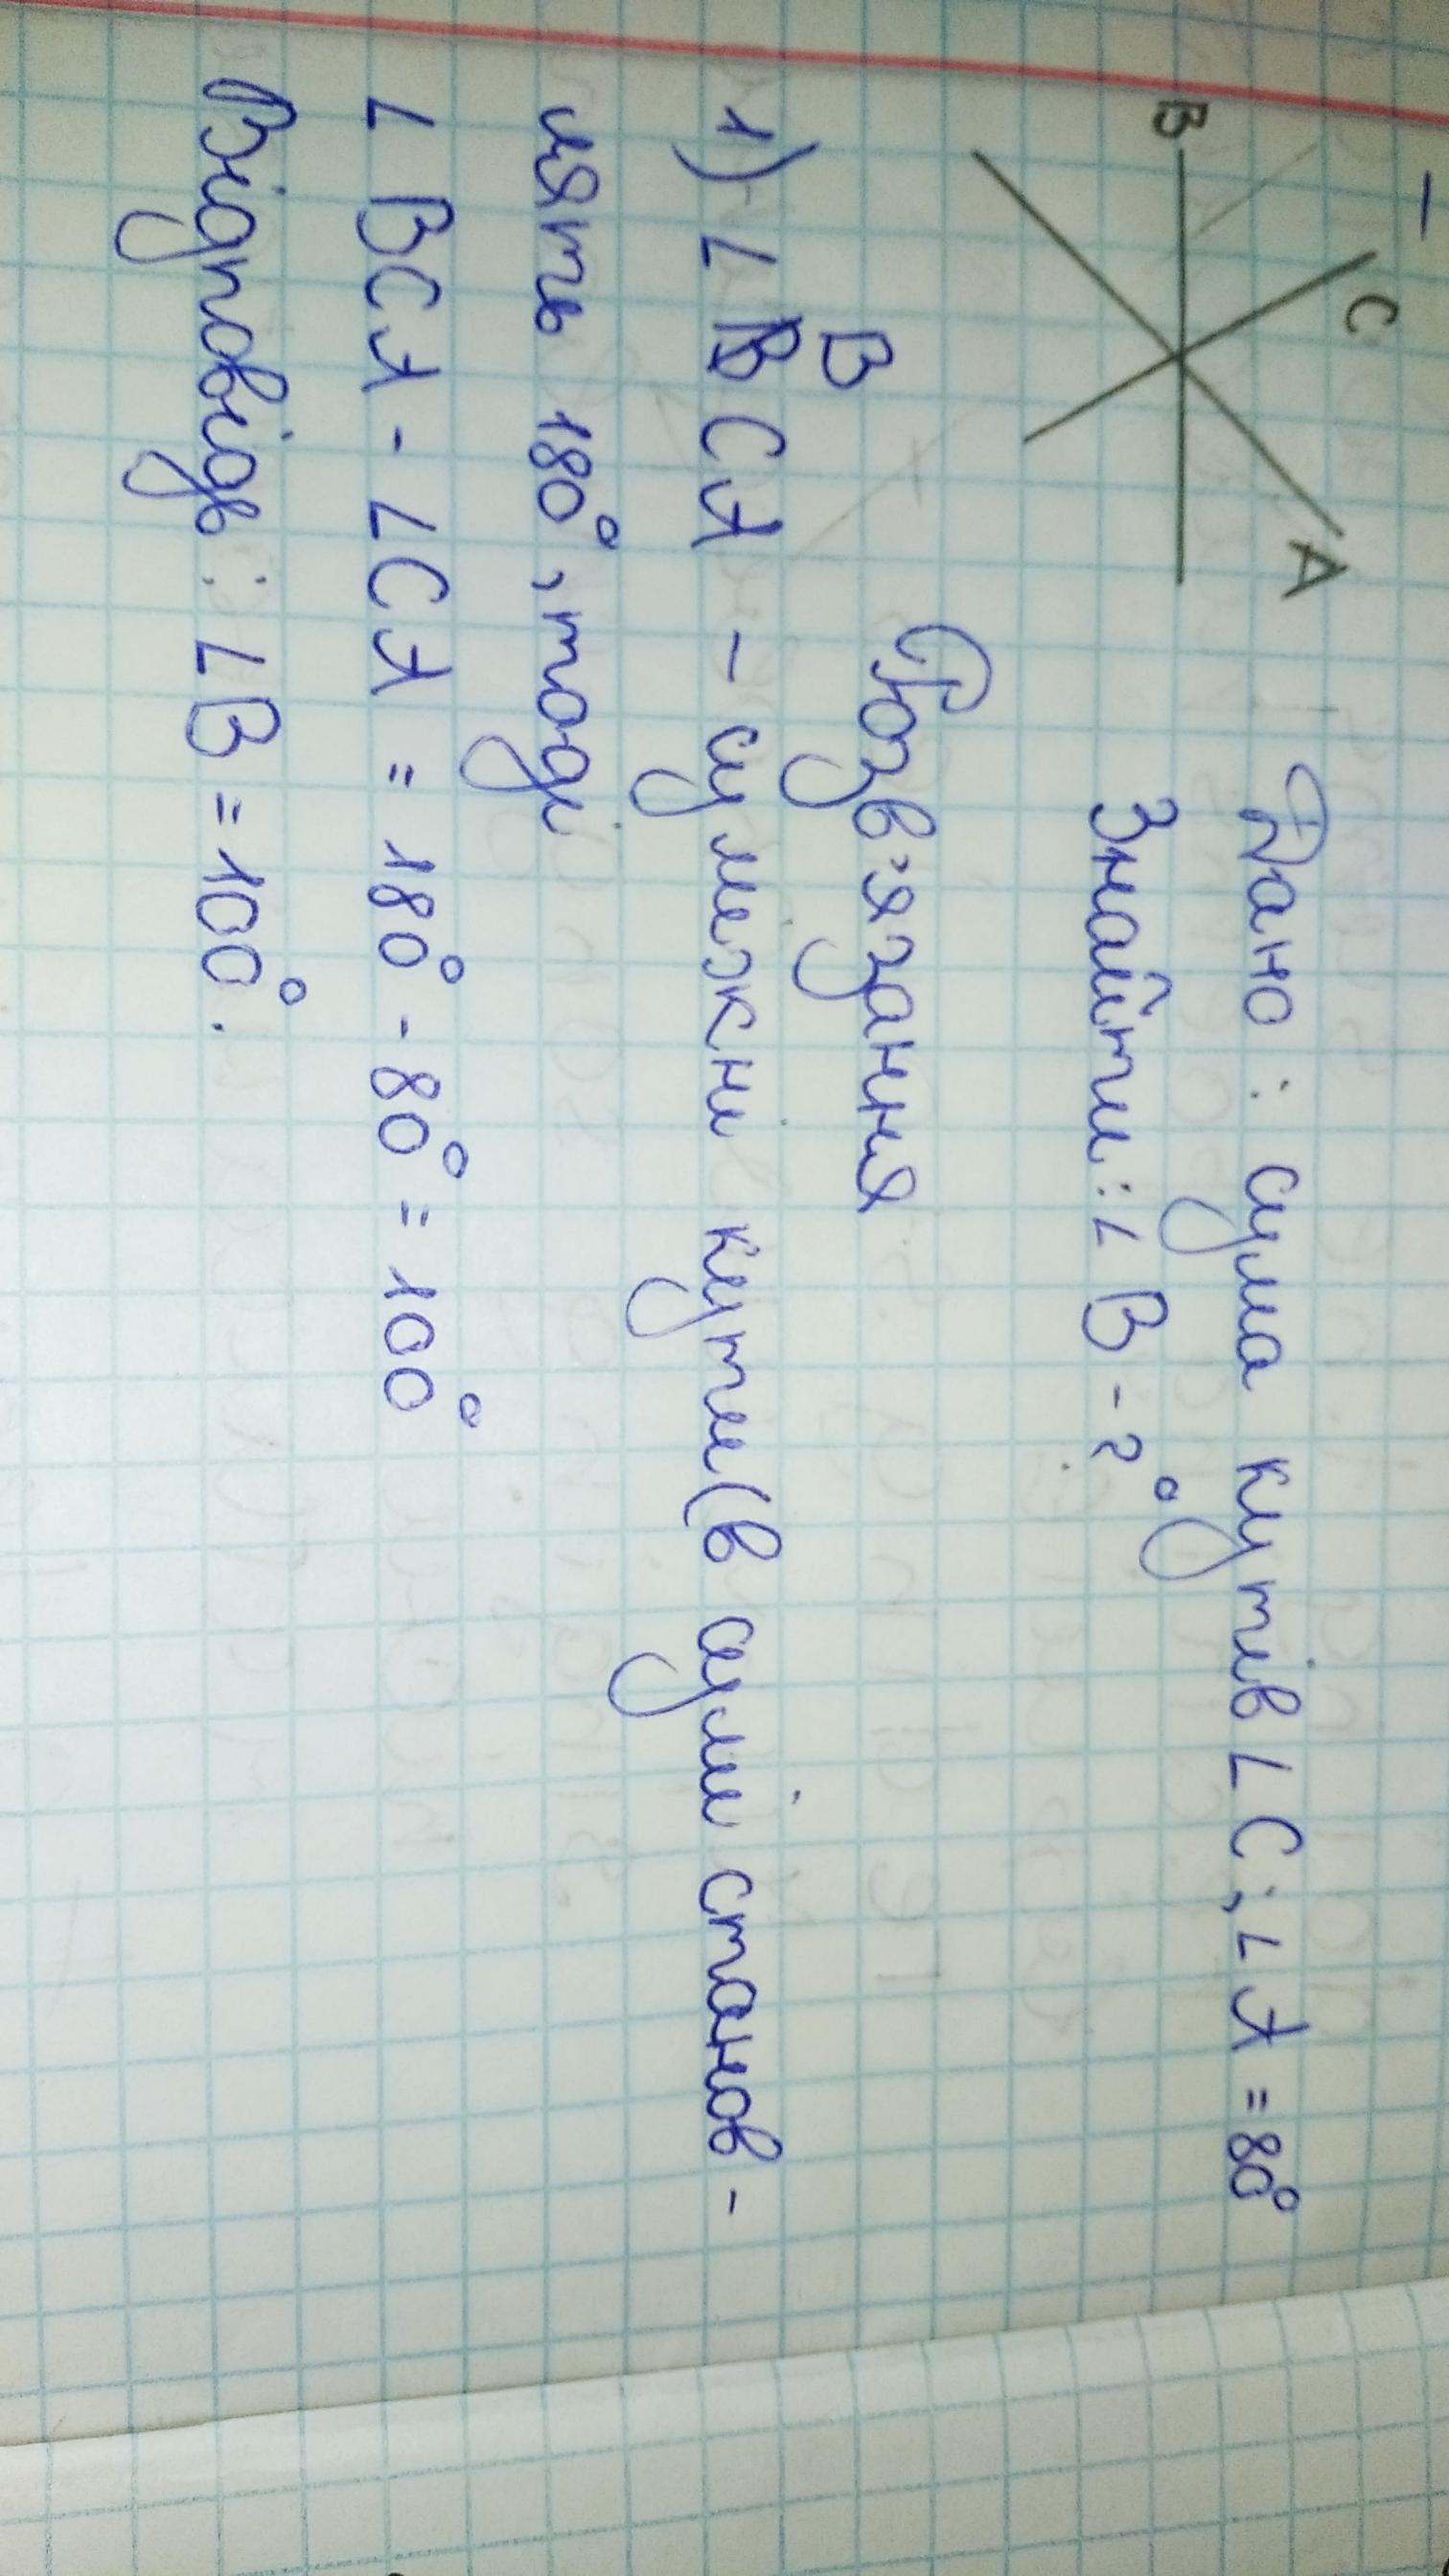 B
C
A
Дано: сума кутів ∠C; ∠A = 80°
Знайти: ∠B - ?
Розв'язання
B
1) ∠BCA - суміжні кути (в сумі станов-
лять 180°, тоді
∠BCA - ∠CA = 180° - 80° = 100°
Відповідь: ∠B = 100°.